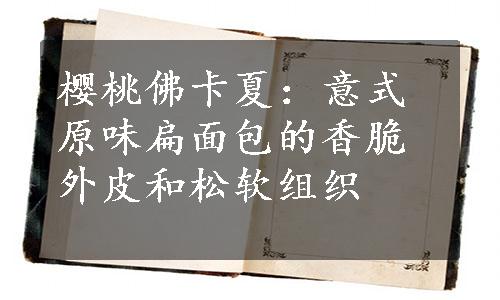 樱桃佛卡夏：意式
原味扁面包的香脆
外皮和松软组织